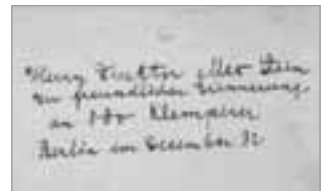 Herrn Doktor Max
zur freundlichen Erinnerung
an Otto Klemperer
Berlin im Dezember 31